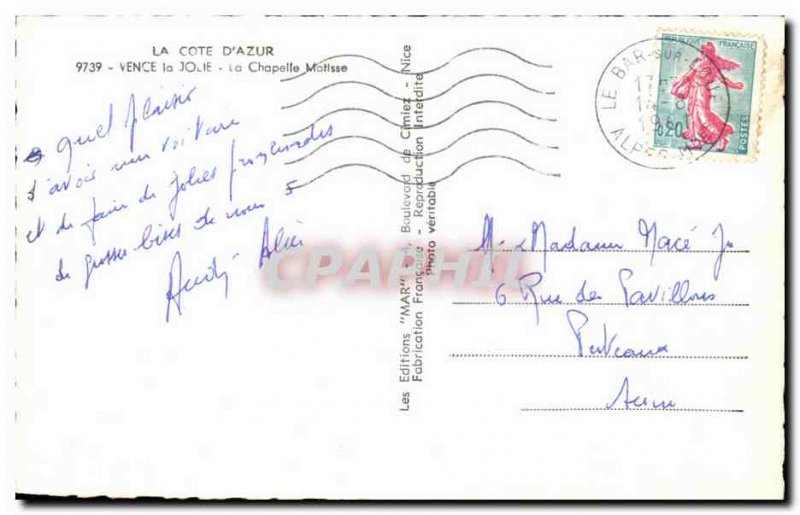 LA COTE D'AZUR
9739 - VENCE la JOLIE - La Chapelle Matisse
quel plaisir
d'avoir une voiture
et de faire de jolies promenades
de grosses bises de nous 5
Les Editions "MAR" Boulevard de Cimiez - Nice
Fabrication Française - Reproduction Interdite
Photo véritable
CPARHII
REPUBLIQUE FRANÇAISE
0,20
POSTES
LE BAR-SUR-LOUP
ALPES
M. & Madame Macé
6 Rue des Pavillons
Puteaux
Seine